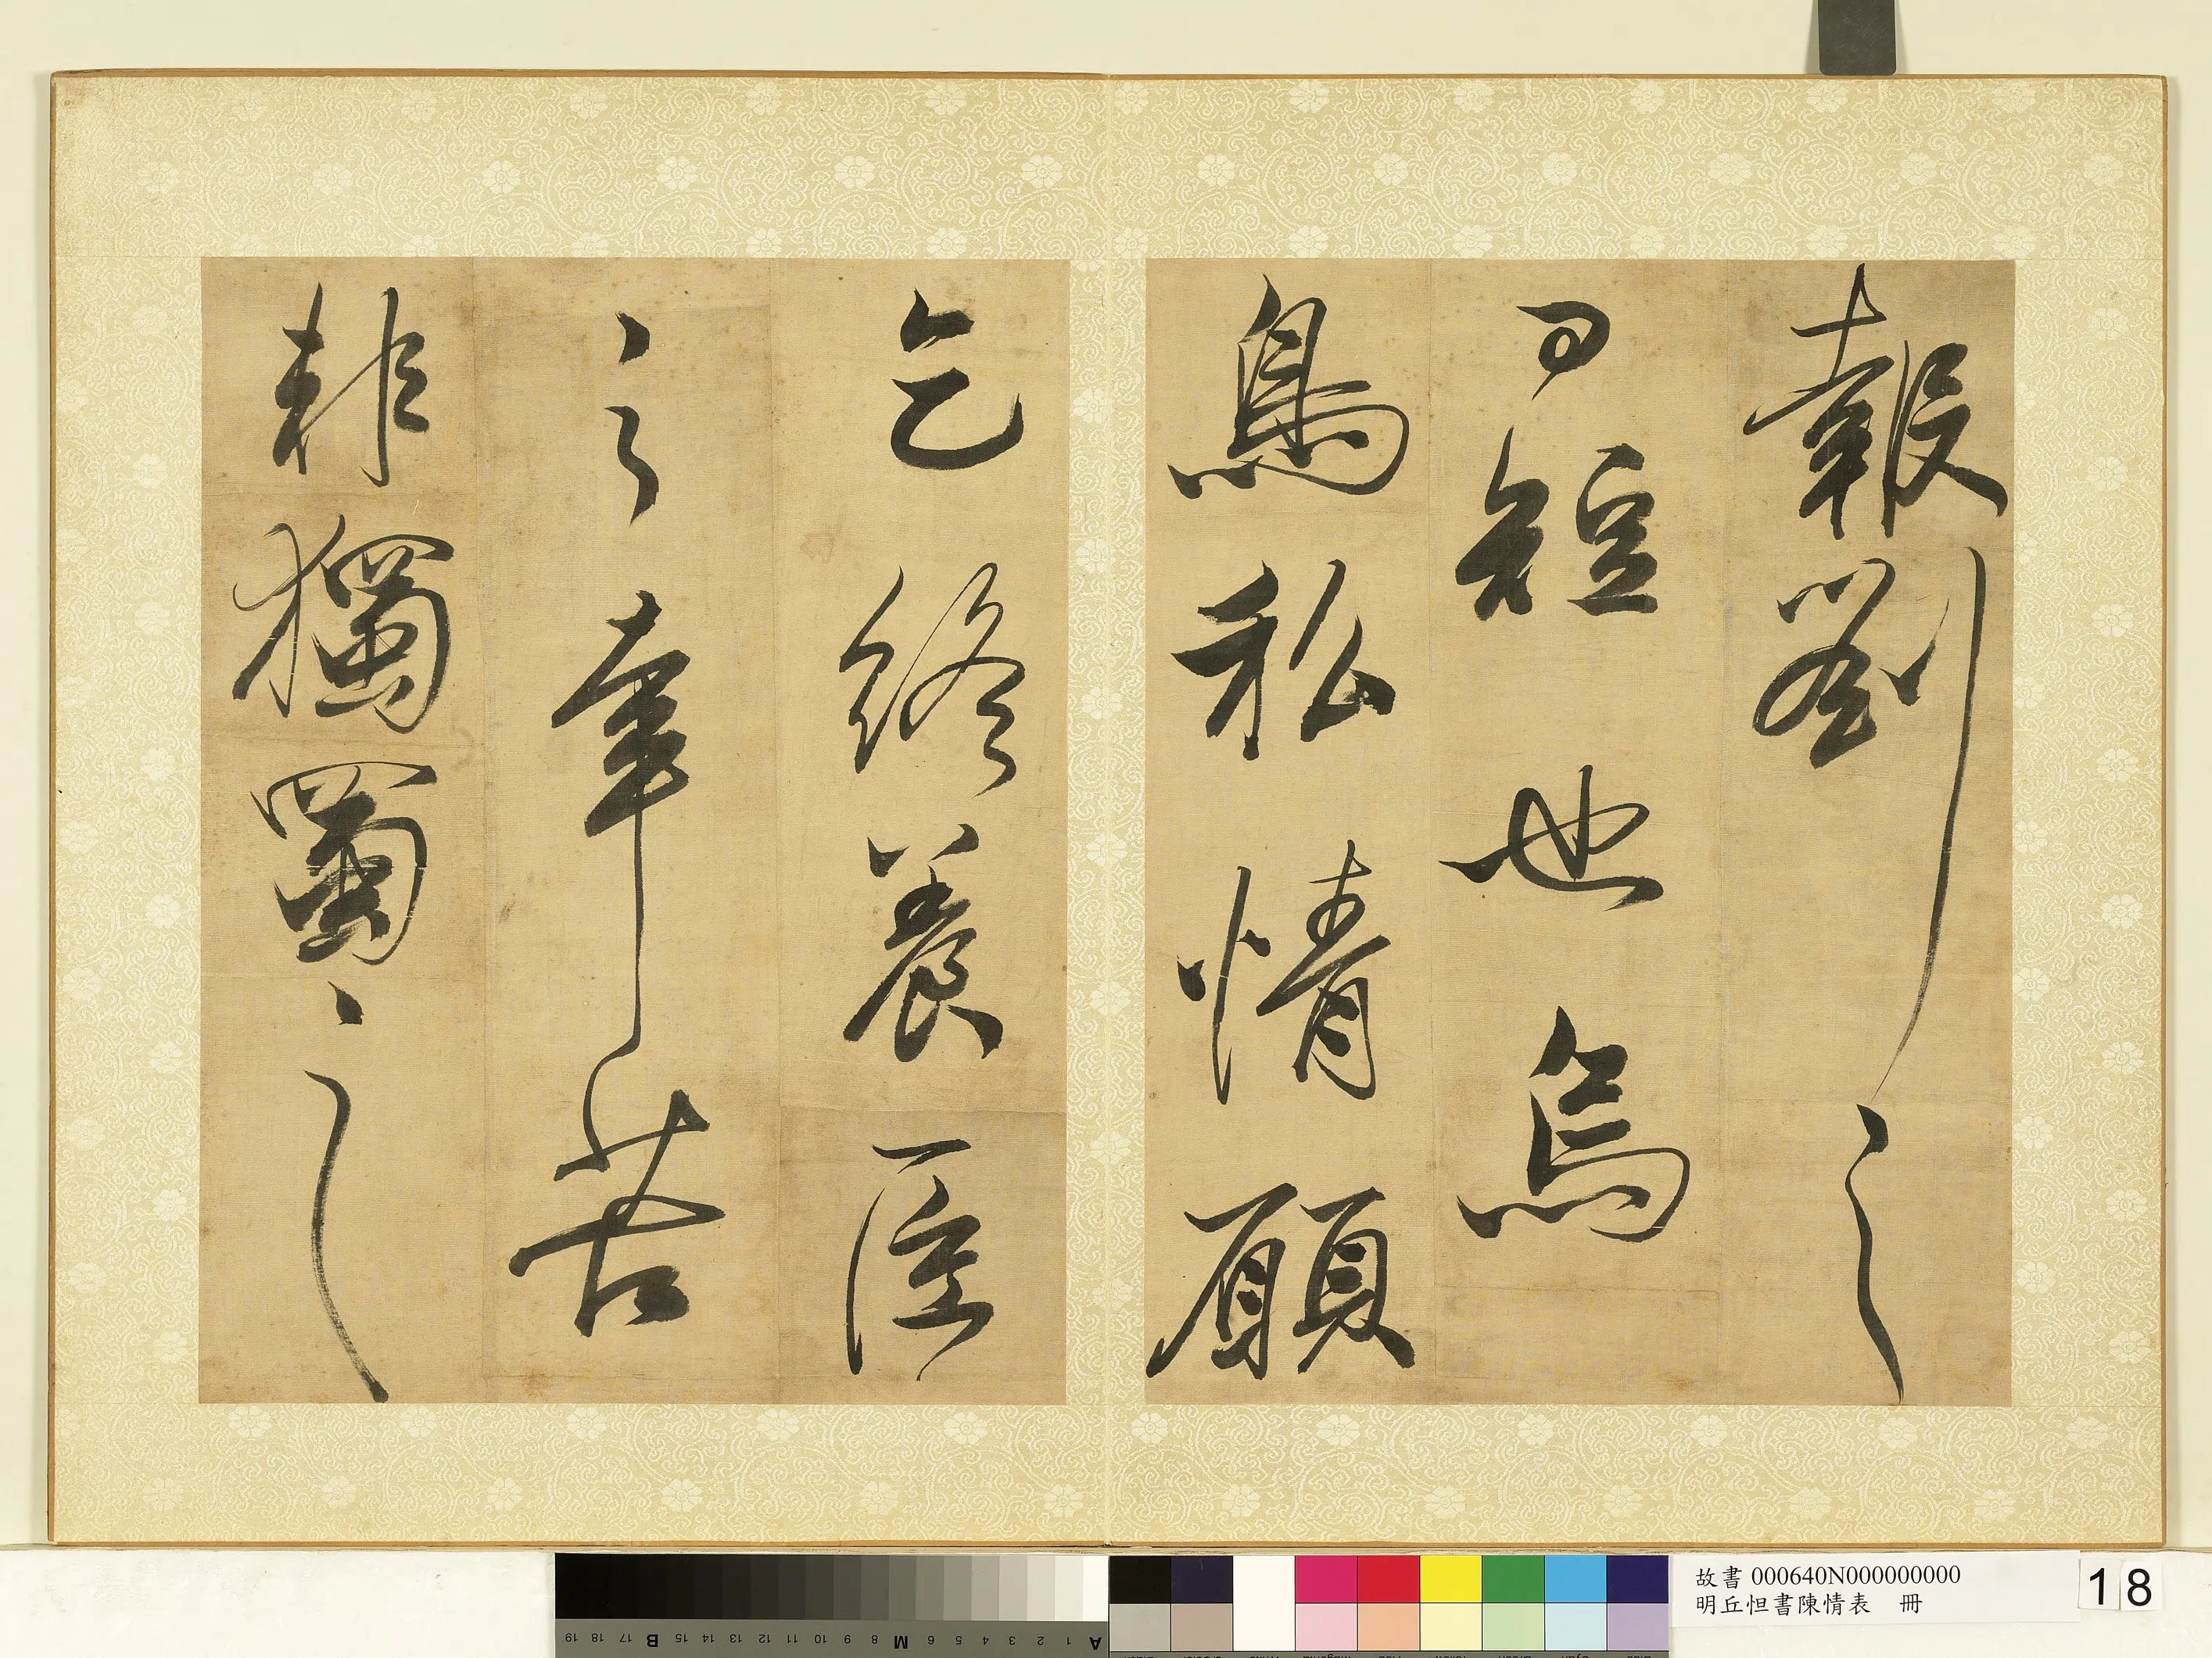 報劉之
日短也烏
鳥私情願
乞終養臣
之辛苦
非獨蜀之
故書 000640N000000000
明丘怛書陳情表 冊
18
A 1 2 3 4 5 6 M 8 9 10 11 12 13 14 15 B 17 18 19